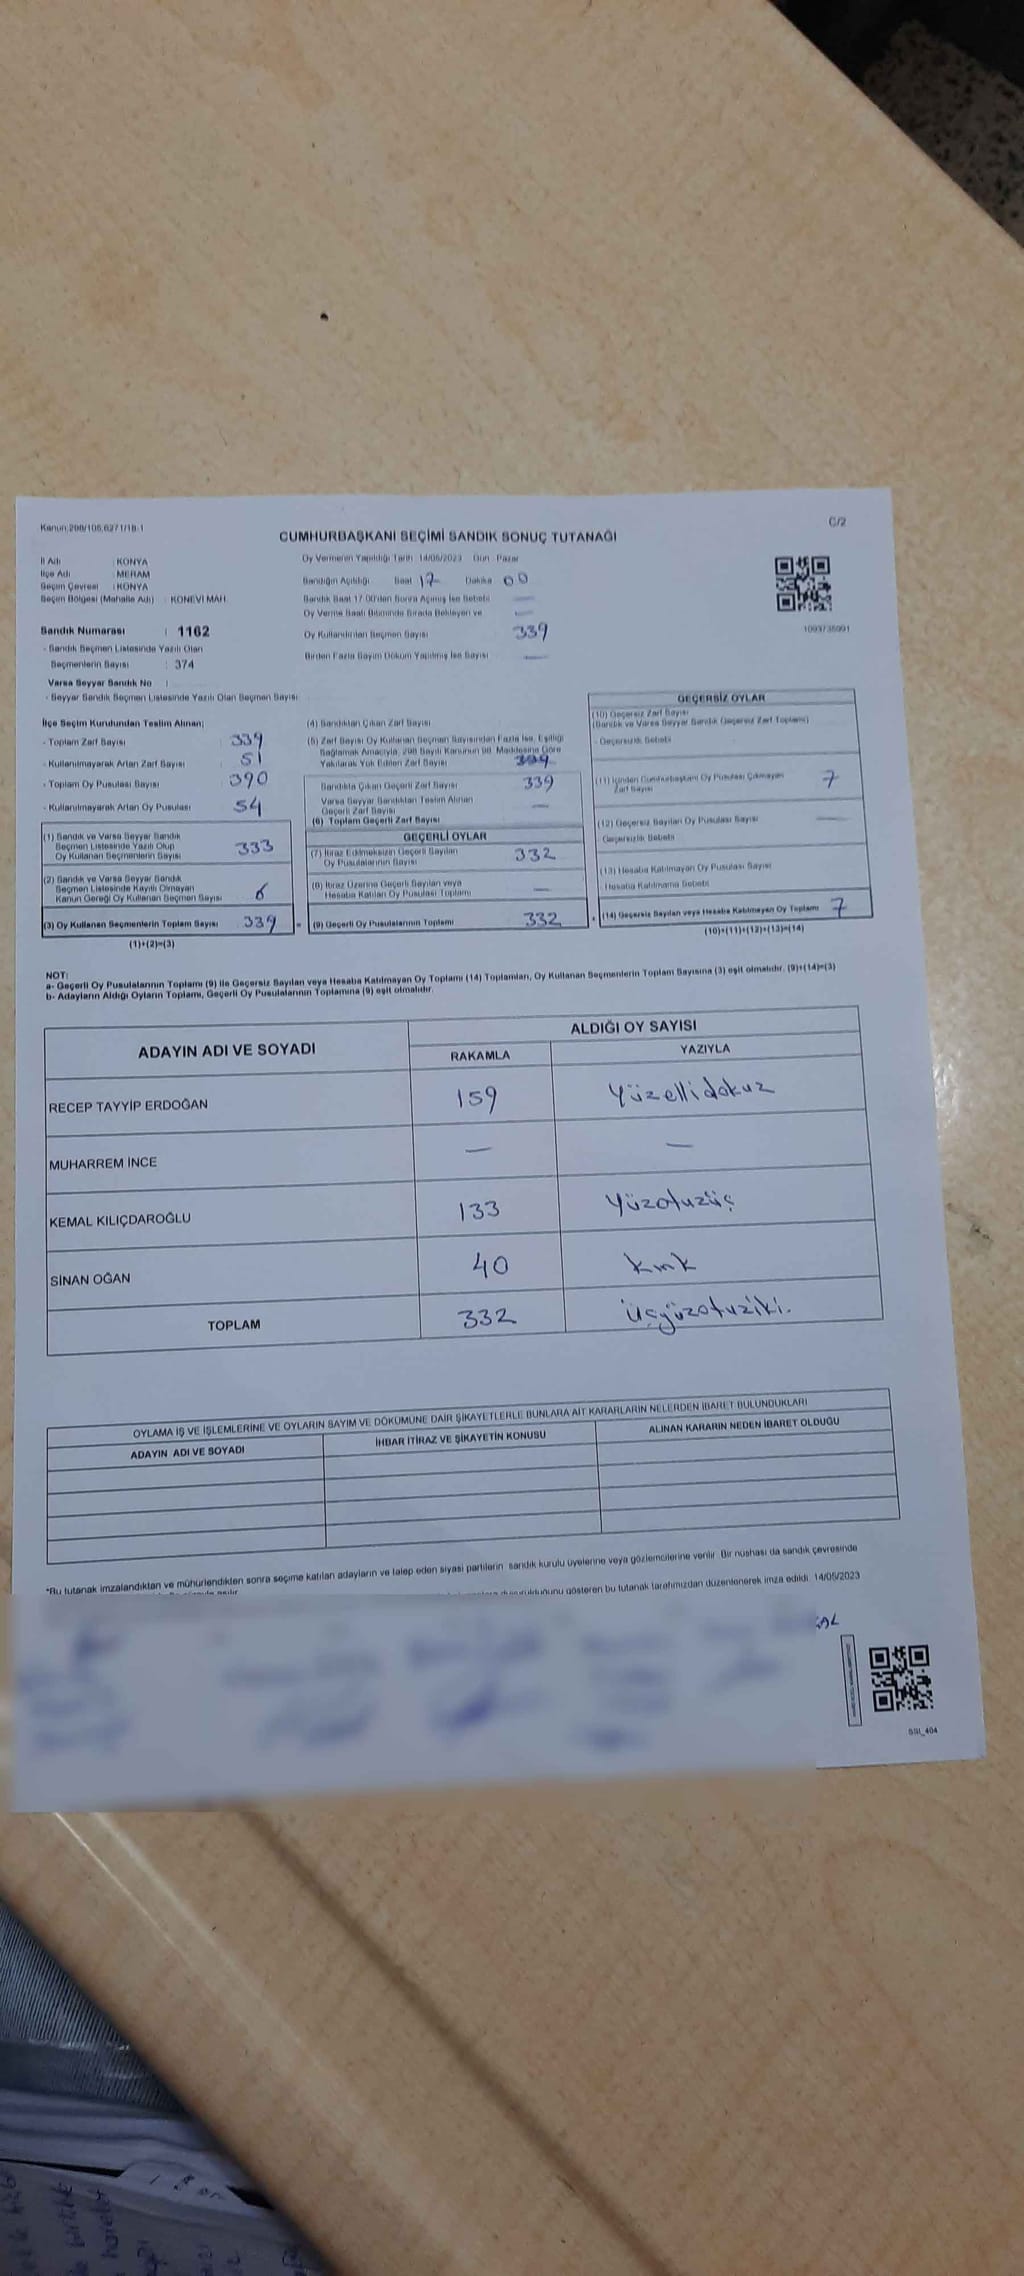 Kanun:298/105,6271/18-1
C/2
CUMHURBAŞKANI SEÇİMİ SANDIK SONUÇ TUTANAĞI
İl Adı : KONYA
İlçe Adı : MERAM
Seçim Çevresi : KONYA
Seçim Bölgesi (Mahalle Adı) : KONEVİ MAH.
Oy Vermenin Yapıldığı Tarih : 14/05/2023 Gün : Pazar
Sandığın Açıldığı Saat 17 Dakika 00
Sandık Saat 17:00'den Sonra Açılmış İse Sebebi —
Oy Verme Saati Bitiminde Sırada Bekleyen ve —
Oy Kullandırılan Seçmen Sayısı 339
Birden Fazla Sayım Döküm Yapılmış İse Sayısı —
1093735991
Sandık Numarası : 1162
- Sandık Seçmen Listesinde Yazılı Olan
Seçmenlerin Sayısı : 374
Varsa Seyyar Sandık No :
- Seyyar Sandık Seçmen Listesinde Yazılı Olan Seçmen Sayısı
İlçe Seçim Kurulundan Teslim Alınan;
- Toplam Zarf Sayısı 339
- Kullanılmayarak Artan Zarf Sayısı 51
- Toplam Oy Pusulası Sayısı 390
- Kullanılmayarak Artan Oy Pusulası 54
(1) Sandık ve Varsa Seyyar Sandık
Seçmen Listesinde Yazılı Olup
Oy Kullanan Seçmenlerin Sayısı 333
(2) Sandık ve Varsa Seyyar Sandık
Seçmen Listesinde Kayıtlı Olmayan
Kanun Gereği Oy Kullanan Seçmen Sayısı 6
(3) Oy Kullanan Seçmenlerin Toplam Sayısı 339
(1)+(2)=(3)
(4) Sandıktan Çıkan Zarf Sayısı
(5) Zarf Sayısı Oy Kullanan Seçmen Sayısından Fazla İse, Eşitliği
Sağlamak Amacıyla, 298 Sayılı Kanunun 98. Maddesine Göre
Yakılarak Yok Edilen Zarf Sayısı
Sandıkta Çıkan Geçerli Zarf Sayısı 339
Varsa Seyyar Sandıktan Teslim Alınan
Geçerli Zarf Sayısı —
(6) Toplam Geçerli Zarf Sayısı
GEÇERLİ OYLAR
(7) İtiraz Edilmeksizin Geçerli Sayılan
Oy Pusulalarının Sayısı 332
(8) İtiraz Üzerine Geçerli Sayılan veya
Hesaba Katılan Oy Pusulası Toplamı —
= (9) Geçerli Oy Pusulalarının Toplamı 332
GEÇERSİZ OYLAR
(10) Geçersiz Zarf Sayısı
(Sandık ve Varsa Seyyar Sandık Geçersiz Zarf Toplamı)
- Geçersizlik Sebebi
(11) İçinden Cumhurbaşkanı Oy Pusulası Çıkmayan
Zarf Sayısı 7
(12) Geçersiz Sayılan Oy Pusulası Sayısı —
Geçersizlik Sebebi
(13) Hesaba Katılmayan Oy Pusulası Sayısı
- Hesaba Katılmama Sebebi
+ (14) Geçersiz Sayılan veya Hesaba Katılmayan Oy Toplamı 7
(10)+(11)+(12)+(13)=(14)
NOT:
a- Geçerli Oy Pusulalarının Toplamı (9) ile Geçersiz Sayılan veya Hesaba Katılmayan Oy Toplamı (14) Toplamları, Oy Kullanan Seçmenlerin Toplam Sayısına (3) eşit olmalıdır. (9)+(14)=(3)
b- Adayların Aldığı Oyların Toplamı, Geçerli Oy Pusulalarının Toplamına (9) eşit olmalıdır.
ADAYIN ADI VE SOYADI
ALDIĞI OY SAYISI
RAKAMLA YAZIYLA
RECEP TAYYİP ERDOĞAN 159 Yüzellidokuz
MUHARREM İNCE — —
KEMAL KILIÇDAROĞLU 133 Yüzotuzüç
SİNAN OĞAN 40 kırk
TOPLAM 332 üçyüzotuziki.
OYLAMA İŞ VE İŞLEMLERİNE VE OYLARIN SAYIM VE DÖKÜMÜNE DAİR ŞİKAYETLERLE BUNLARA AİT KARARLARIN NELERDEN İBARET BULUNDUKLARI
ADAYIN ADI VE SOYADI İHBAR İTİRAZ VE ŞİKAYETİN KONUSU ALINAN KARARIN NEDEN İBARET OLDUĞU
*Bu tutanak imzalandıktan ve mühürlendikten sonra seçime katılan adayların ve talep eden siyasi partilerin sandık kurulu üyelerine veya gözlemcilerine verilir. Bir nüshası da sandık çevresinde
gösteren bu tutanak tarafımızdan düzenlenerek imza edildi. 14/05/2023
SSI_404